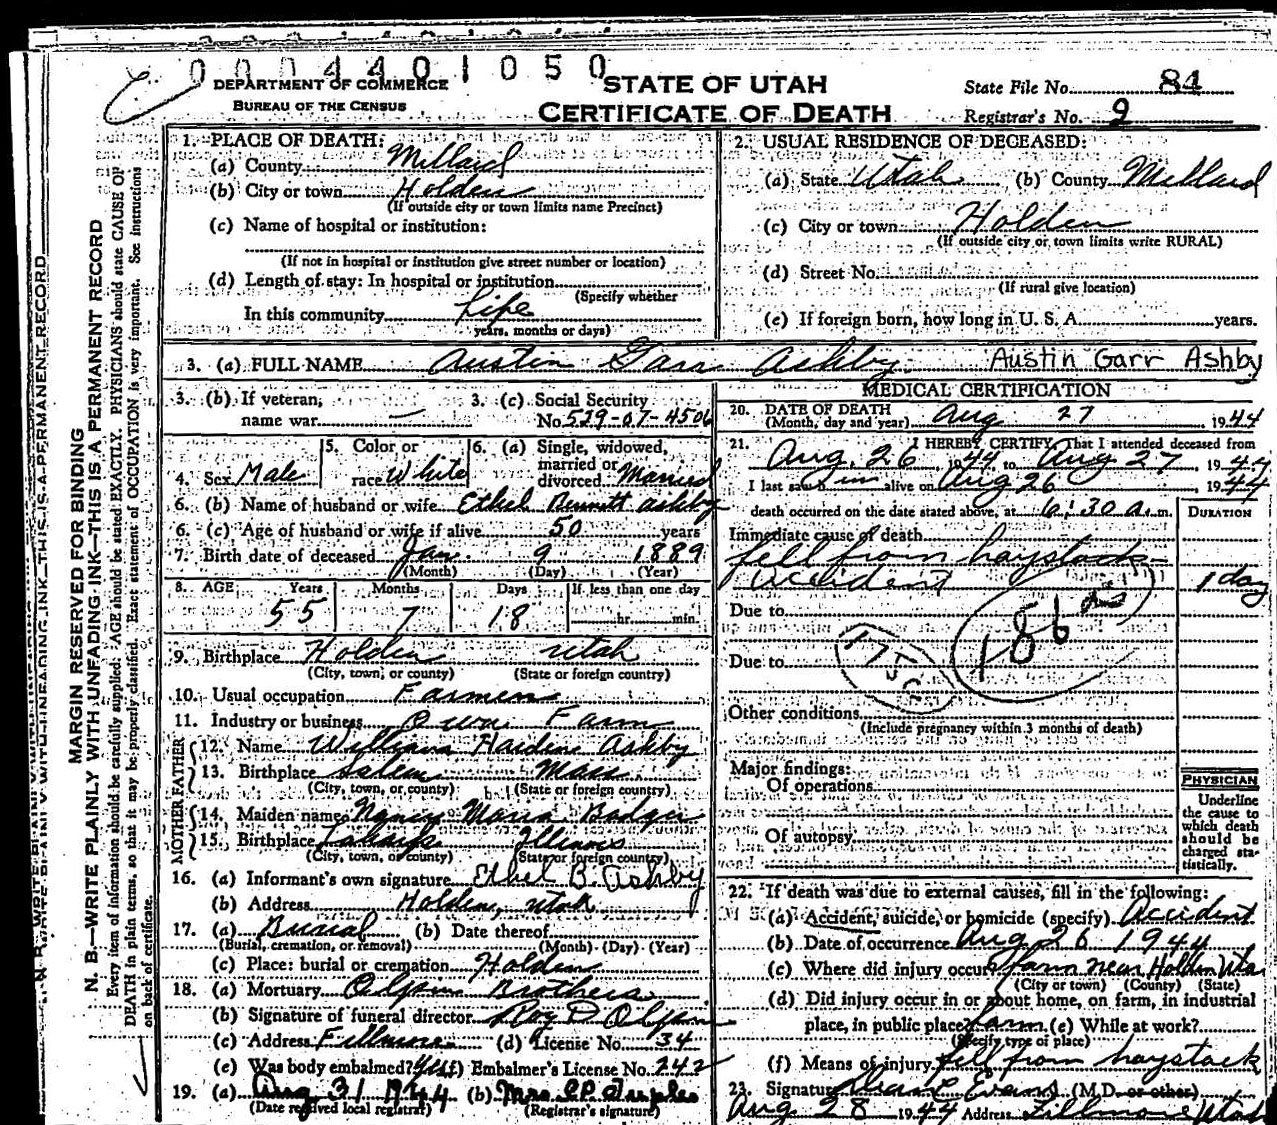 0004401050
DEPARTMENT OF COMMERCE
BUREAU OF THE CENSUS
STATE OF UTAH
CERTIFICATE OF DEATH
State File No. 84
Registrar's No. 9
MARGIN RESERVED FOR BINDING
N. B.—WRITE PLAINLY WITH UNFADING INK—THIS IS A PERMANENT RECORD
Every item of information should be carefully supplied. AGE should be stated EXACTLY. PHYSICIANS should state CAUSE OF
DEATH in plain terms, so that it may be properly classified. Exact statement of OCCUPATION is very important. See instructions
on back of certificate.
1. PLACE OF DEATH:
(a) County Millard
(b) City or town Holden
(If outside city or town limits name Precinct)
(c) Name of hospital or institution:
(If not in hospital or institution give street number or location)
(d) Length of stay: In hospital or institution
(Specify whether
In this community Life
years, months or days)
2. USUAL RESIDENCE OF DECEASED:
(a) State Utah (b) County Millard
(c) City or town Holden
(If outside city or town limits write RURAL)
(d) Street No.
(If rural give location)
(e) If foreign born, how long in U. S. A. years.
3. (a) FULL NAME Austin Garr Ashby Austin Garr Ashby
3. (b) If veteran, name war —
3. (c) Social Security No. 529-07-4506
4. Sex Male
5. Color or race White
6. (a) Single, widowed, married or divorced Married
6. (b) Name of husband or wife Ethel Bennett Ashby
6. (c) Age of husband or wife if alive 50 years
7. Birth date of deceased Jan. 9 1889
(Month) (Day) (Year)
8. AGE: Years Months Days If less than one day
55 7 18 hr. min.
9. Birthplace Holden Utah
(City, town, or county) (State or foreign country)
10. Usual occupation Farmer
11. Industry or business Own Farm
FATHER
12. Name William Harden Ashby
13. Birthplace Salem Mass
(City, town, or county) (State or foreign country)
MOTHER
14. Maiden name Nancy Maria Badger
15. Birthplace Illinois
(City, town, or county) (State or foreign country)
16. (a) Informant's own signature Ethel B. Ashby
(b) Address Holden, Utah
17. (a) Burial (b) Date thereof
(Burial, cremation, or removal) (Month) (Day) (Year)
(c) Place: burial or cremation Holden
18. (a) Mortuary Olpin Brothers
(b) Signature of funeral director Roy D Olpin
(c) Address Fillmore (d) License No. 34
(e) Was body embalmed? Yes (f) Embalmer's License No. 242
19. (a) Aug 31 1944 (b) Mrs
(Date received local registrar) (Registrar's signature)
MEDICAL CERTIFICATION
20. DATE OF DEATH
(Month, day and year) Aug 27 1944
21. I HEREBY CERTIFY, That I attended deceased from
Aug. 26, 1944 to Aug 27, 1944
I last saw him alive on Aug 26 1944
death occurred on the date stated above, at 6:30 A. m.
DURATION
Immediate cause of death
fell from haystack—
accident 1 day
Due to
186
Due to
Other conditions
(Include pregnancy within 3 months of death)
Major findings:
Of operations
Of autopsy
PHYSICIAN
Underline
the cause to
which death
should be
charged sta-
tistically.
22. If death was due to external causes, fill in the following:
(a) Accident, suicide, or homicide (specify) Accident
(b) Date of occurrence Aug 26 1944
(c) Where did injury occur? Farm near Holden Utah
(City or town) (County) (State)
(d) Did injury occur in or about home, on farm, in industrial
place, in public place? farm (e) While at work?
(Specify type of place)
(f) Means of injury fell from haystack
23. Signature Evans (M.D. or other)
Aug 28 1944 Address Fillmore Utah